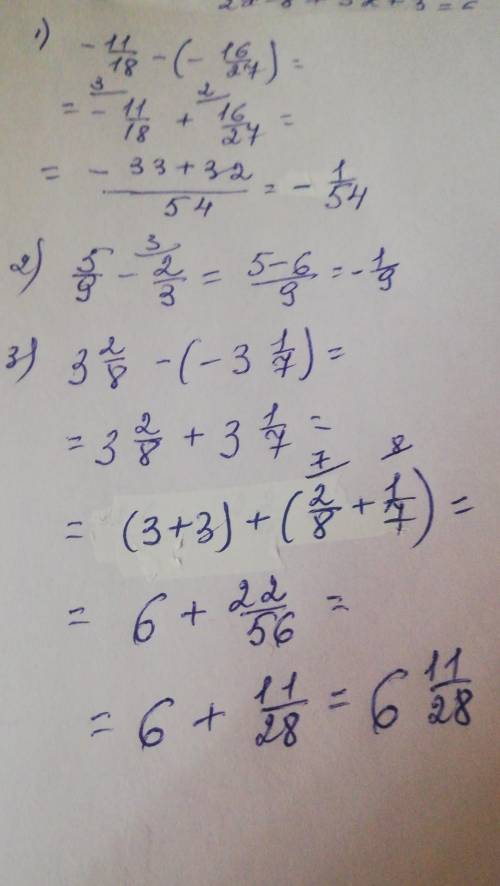 1) -11/18 - (- 16/27) =
= 3 -11/18 + 2 16/27 =
= - 33+32/54 = - 1/54
2) 5/9 - 3 2/3 = 5-6/9 = -1/9
3) 3 2/8 - (-3 1/7) =
= 3 2/8 + 3 1/7 =
= (3+3) + (7 2/8 + 8 1/7) =
= 6 + 22/56 =
= 6 + 11/28 = 6 11/28